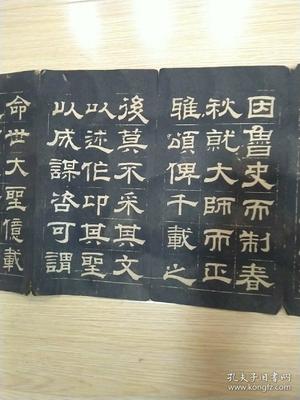 因魯史而制春
秋就大師而正
雅頌俾千載之
後莫不采其文
以述作卬其聖
以成謀咨可謂
命世大聖億載
孔夫子旧书网